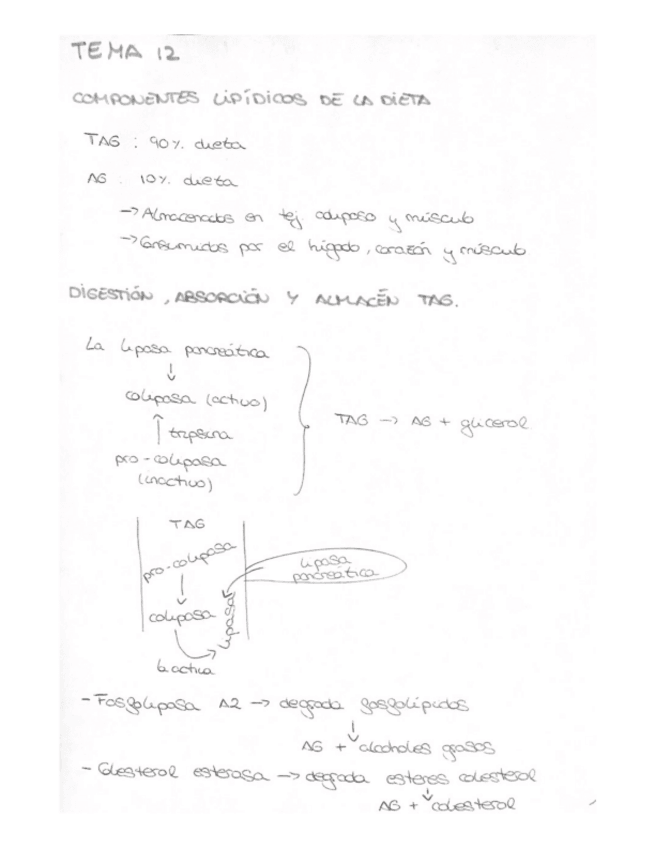 TEMA 12
COMPONENTES LIPÍDICOS DE LA DIETA
TAG : 90% dieta
AG : 10% dieta
→ Almacenados en tej adiposo y músculo
→ Consumidos por el hígado, corazón y músculo
DIGESTIÓN, ABSORCIÓN Y ALMACÉN TAG.
La lipasa pancreática
↓
colipasa (activo)
↑ tripsina
pro-colipasa
(inactivo)
TAG → AG + glicerol
TAG
pro-colipasa
↓
colipasa
lipasa
la activa
lipasa
pancreática
- Fosfolipasa A2 → degrada fosfolípidos
↓
AG + alcoholes grasos
- Colesterol esterasa → degrada esteres colesterol
↓
AG + colesterol